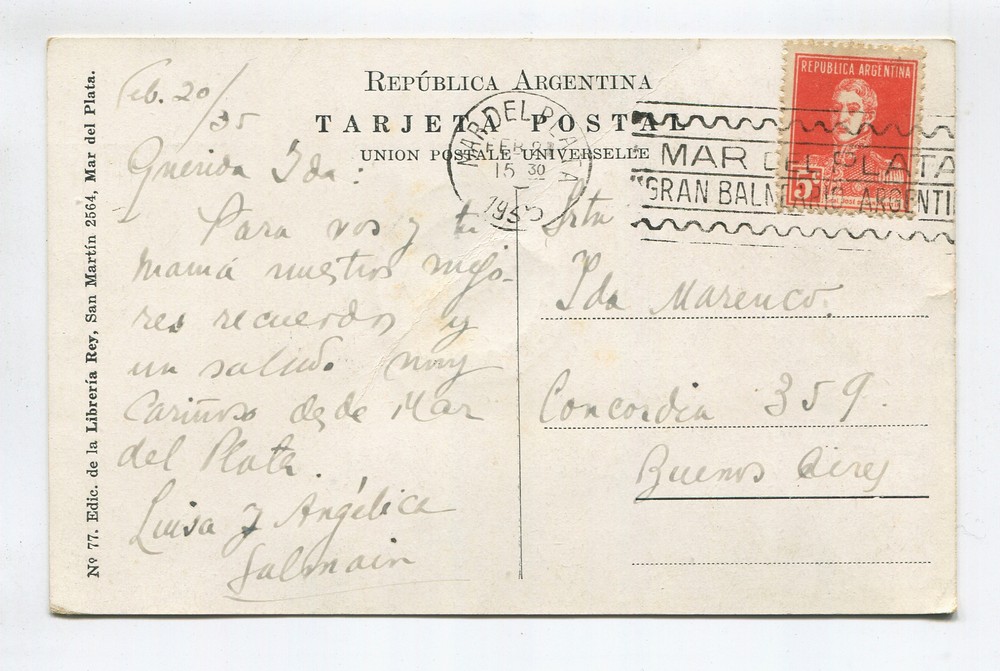 Nº 77. Edic. de la Librería Rey, San Martín 2564, Mar del Plata.
REPÚBLICA ARGENTINA
TARJETA POSTAL
UNION POSTALE UNIVERSELLE
MAR DEL PLATA
FEB 2
15 30
1935
MAR DEL PLATA
"GRAN BALNEARIO ARGENTI
REPUBLICA ARGENTINA
5c
Feb. 20/
35
Querida Ida:
Para vos y tu
mamá nuestros mejo-
res recuerdos y
un saludo muy
cariñoso desde Mar
del Plata.
Luisa y Angélica
Salmain
Srta
Ida Marenco.
Concordia 359.
Buenos Aires